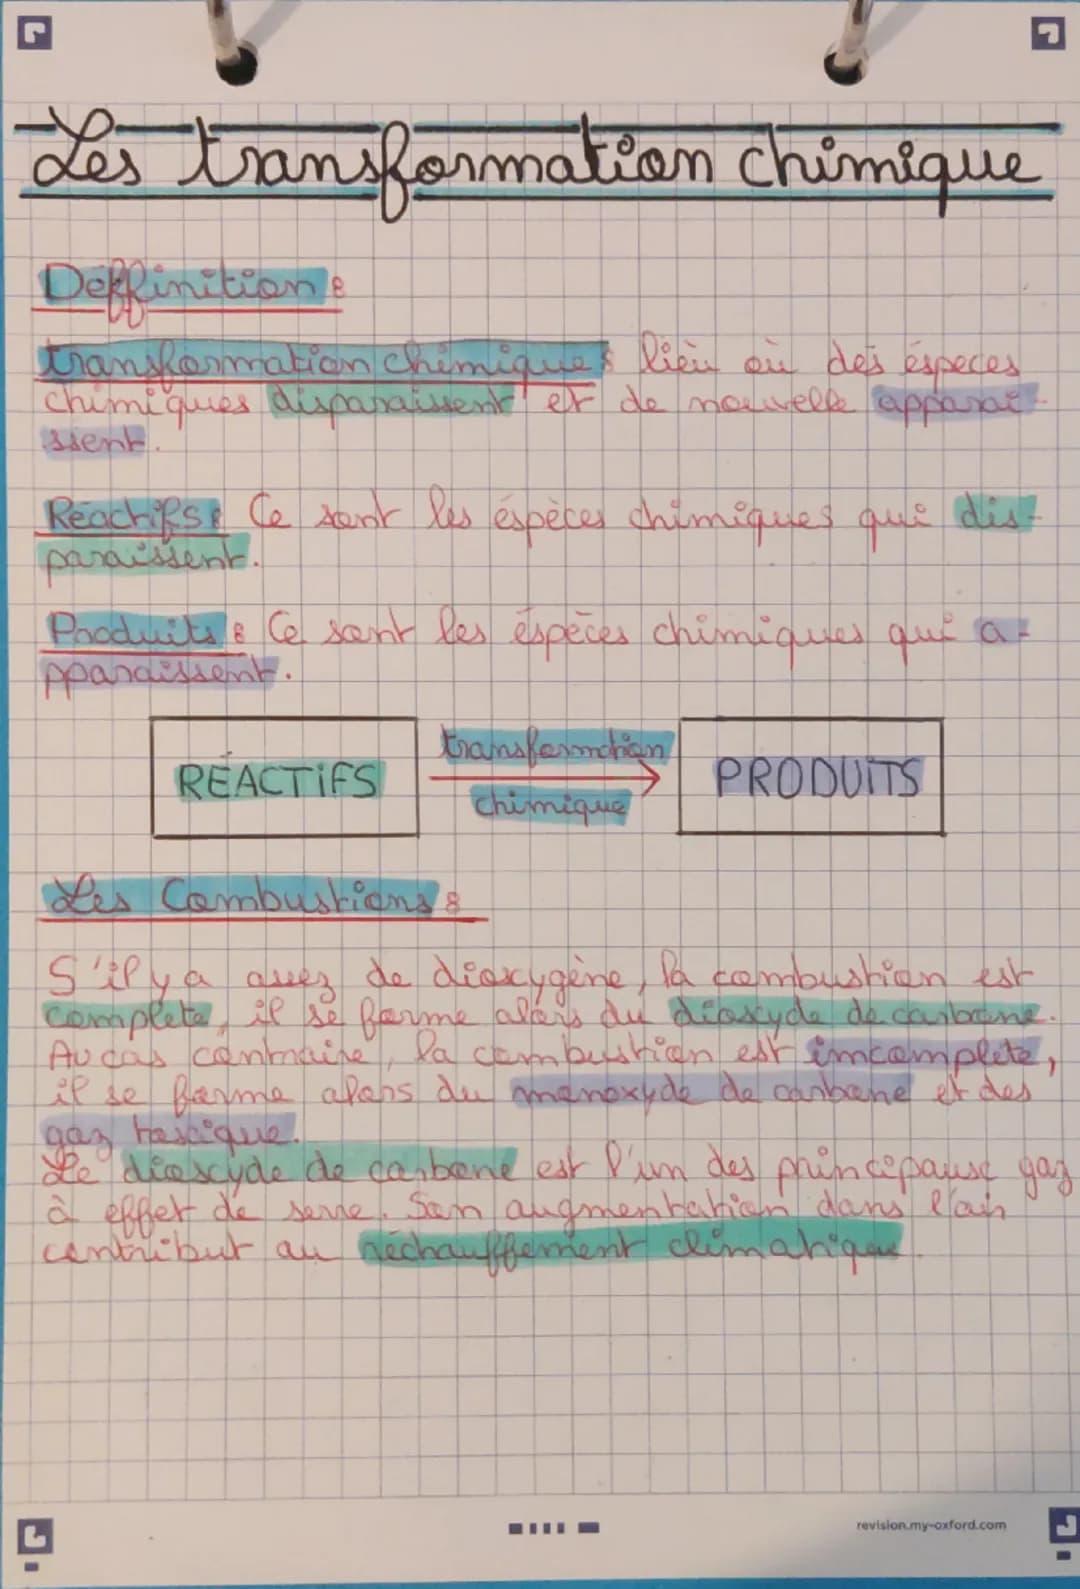 Les transformation chimique
Deffinition :
transformation chimique : lieu où des éspeces
chimiques disparaissent et de nouvelle apparai-
ssent.
Réactifs : Ce sont les éspèces chimiques qui dis-
paraissent.
Produits : Ce sont les éspèces chimiques qui a-
pparaissent.
RÉACTIFS
transformation
chimique
PRODUITS
Les Combustions :
S'il y a assez de dioxygène, la combustion est
complete, il se forme alors du dioxyde de carbone.
Au cas contraire, la combustion est imcomplète,
il se forme alors du monoxyde de carbone et des
gaz toxique.
Le dioxyde de carbone est l'un des principaux gaz
à effet de serre. Son augmentation dans l'air
contribut au réchauffement climatique.
revision.my-oxford.com